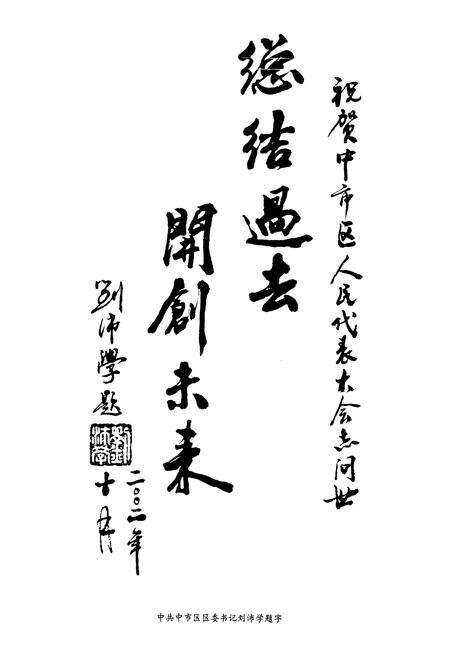 祝贺中市区人民代表大会志问世
總结過去
開創未来
刘沛學题
二〇〇二年
十月
中共中市区区委书记刘沛学题字